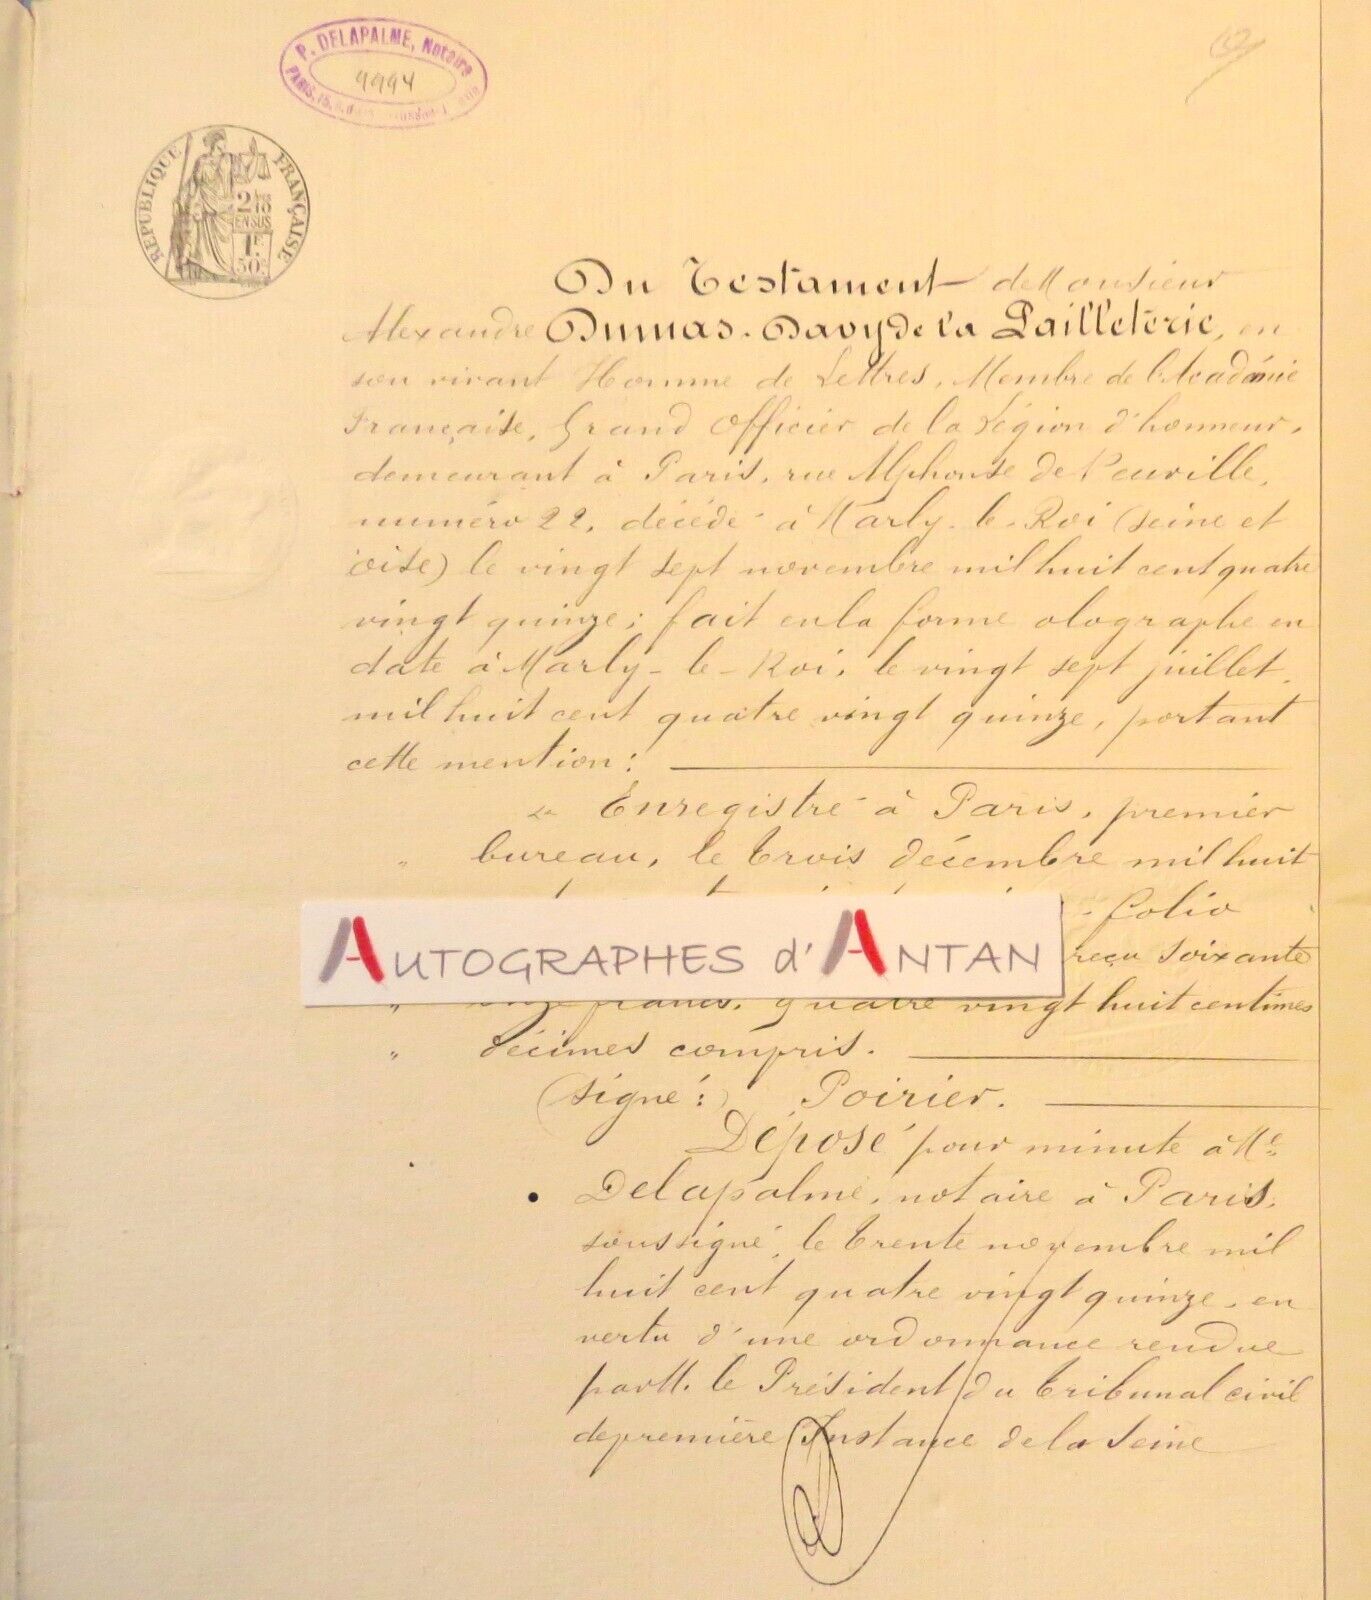 P. DELAPALME, Notaire
PARIS, 15,
9994
RÉPUBLIQUE FRANÇAISE
2/10
EN SUS
1F
50c
Du Testament de Monsieur
Alexandre Dumas-Davy de la Pailleterie, en
son vivant Homme de Lettres, Membre de l'Académie
Française, Grand Officier de la Légion d'honneur,
demeurant à Paris, rue Alphonse de Neuville,
numéro 22, décédé à Marly-le-Roi (Seine et
oise) le vingt sept novembre mil huit cent quatre
vingt quinze; fait en la forme olographe en
date à Marly-le-Roi, le vingt sept juillet
mil huit cent quatre vingt quinze, portant
cette mention:
" Enregistré à Paris, premier
" bureau, le trois décembre mil huit
folio
AUTOGRAPHES d'ANTAN
reçu soixante
" francs, quatre vingt huit centimes
" décimes compris.
(signé:) Poirier.
Déposé pour minute à Me
Delapalme, notaire à Paris,
soussigné, le trente novembre mil
huit cent quatre vingt quinze, en
vertu d'une ordonnance rendue
par M. le Président du tribunal civil
de première Instance de la Seine